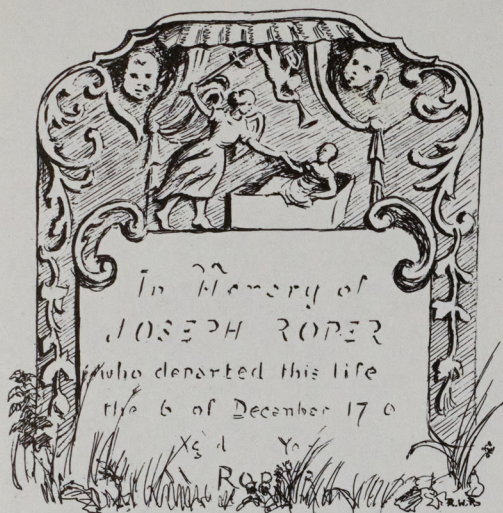 In Memory of
JOSEPH ROPER
who departed this life
the 6 of December 17 0
ROBER
R.W.P.